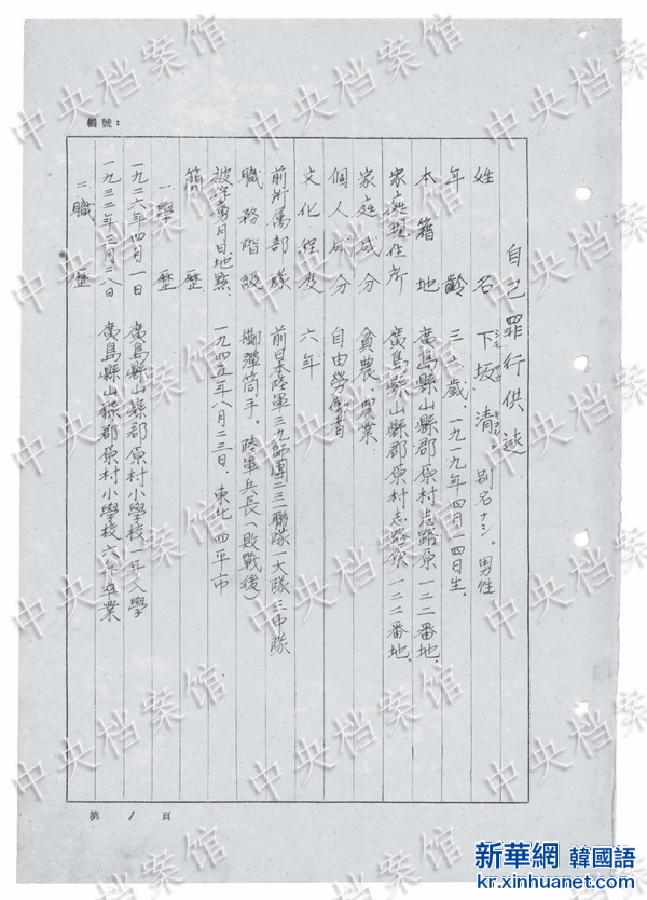 編號:
自己罪行供述
姓名 下坂清。別名ナシ。男性
年齡 三〇歲、一九一九年四月一四日生。
本籍地 廣島縣山縣郡原村志路原一二二番地。
家庭現住所 廣島縣山縣郡原村志路原一二二番地。
家庭成分 貧農、農業、
個人成分 自由勞働者
文化程度 六年
前所屬部隊 前日本陸軍三九師團二三二聯隊一大隊三中隊
職務階級 擲彈筒手。陸軍兵長(敗戰後)
被俘 地點、一九四五年八月二三日、東北四平市
簡歷
一、學歷
一九二六年四月一日 廣島縣山縣郡原村小學校一年入學
一九三二年三月二八日 廣島縣山縣郡原村小學校六年卒業
二、職歷
第 1 頁
中央档案馆
新華網 韓國語
kr.xinhuanet.com